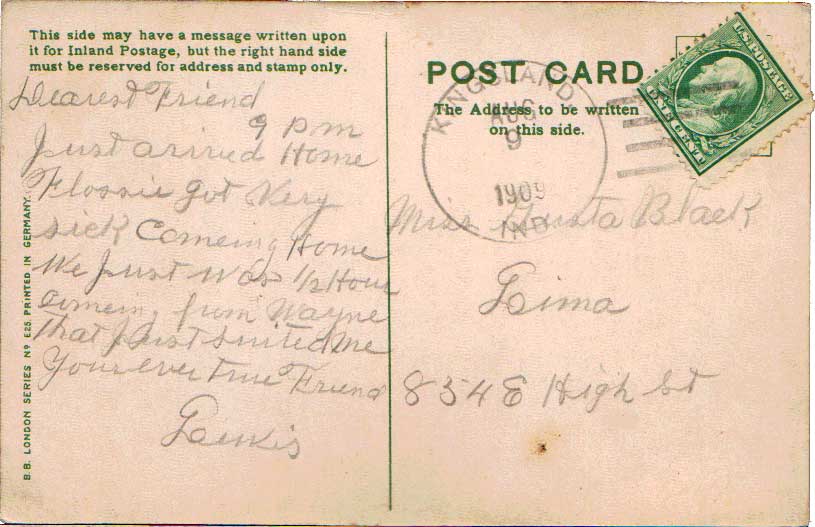 This side may have a message written upon
it for Inland Postage, but the right hand side
must be reserved for address and stamp only.
Dearest Friend
9 pm
Just arrived Home
Flossie got Very
sick Comeing Home
We Just Was 1/2 Hour
Comeing from Wayne
That Just suited Me
Your ever true Friend
Lewis
B.B. LONDON SERIES No E25. PRINTED IN GERMANY.
POST CARD
The Address to be written
on this side.
KINGSLAND
AUG
9
1909
IND
U.S. POSTAGE
ONE CENT
Miss Black
Lima
854 E High St